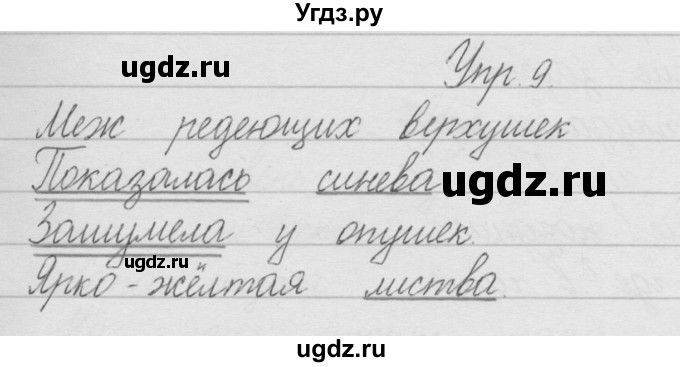 Угдз.ру
ugdz.ru
Упр. 9.
Меж редеющих верхушек
Показалась синева
ugdz.ru
Зашумела у опушек.
ugdz.ru
Ярко-жёлтая листва.
ugdz.ru